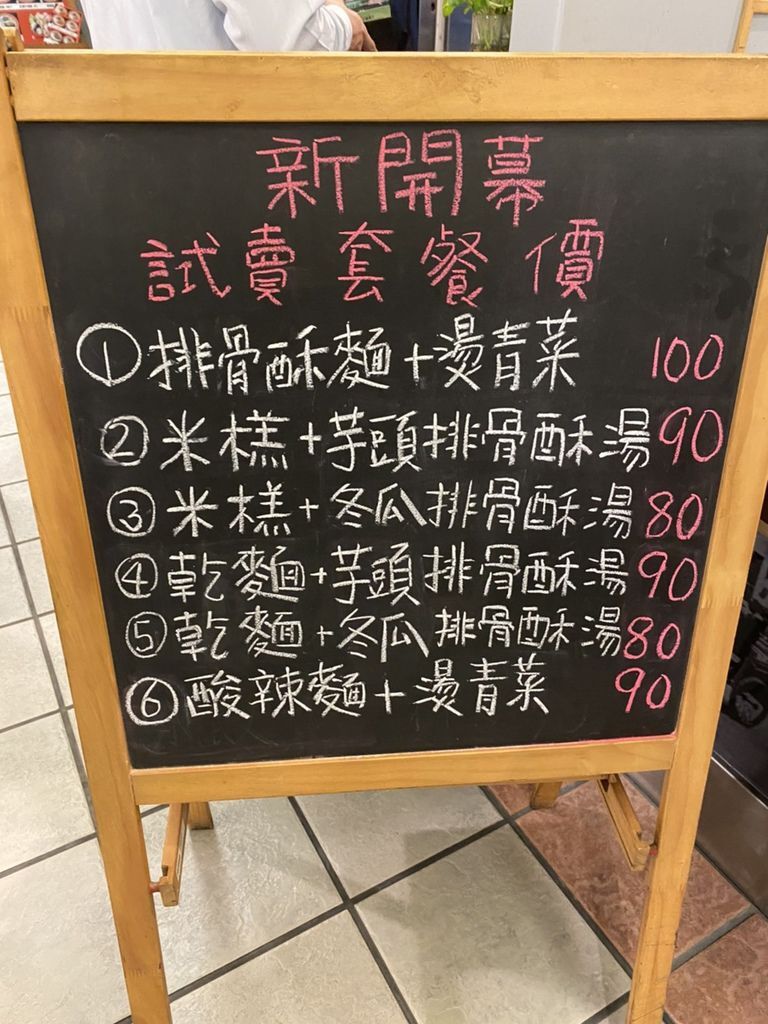 新開幕
試賣套餐價
① 排骨酥麵+燙青菜 100
② 米糕+芋頭排骨酥湯 90
③ 米糕+冬瓜排骨酥湯 80
④ 乾麵+芋頭排骨酥湯 90
⑤ 乾麵+冬瓜排骨酥湯 80
⑥ 酸辣麵+燙青菜 90